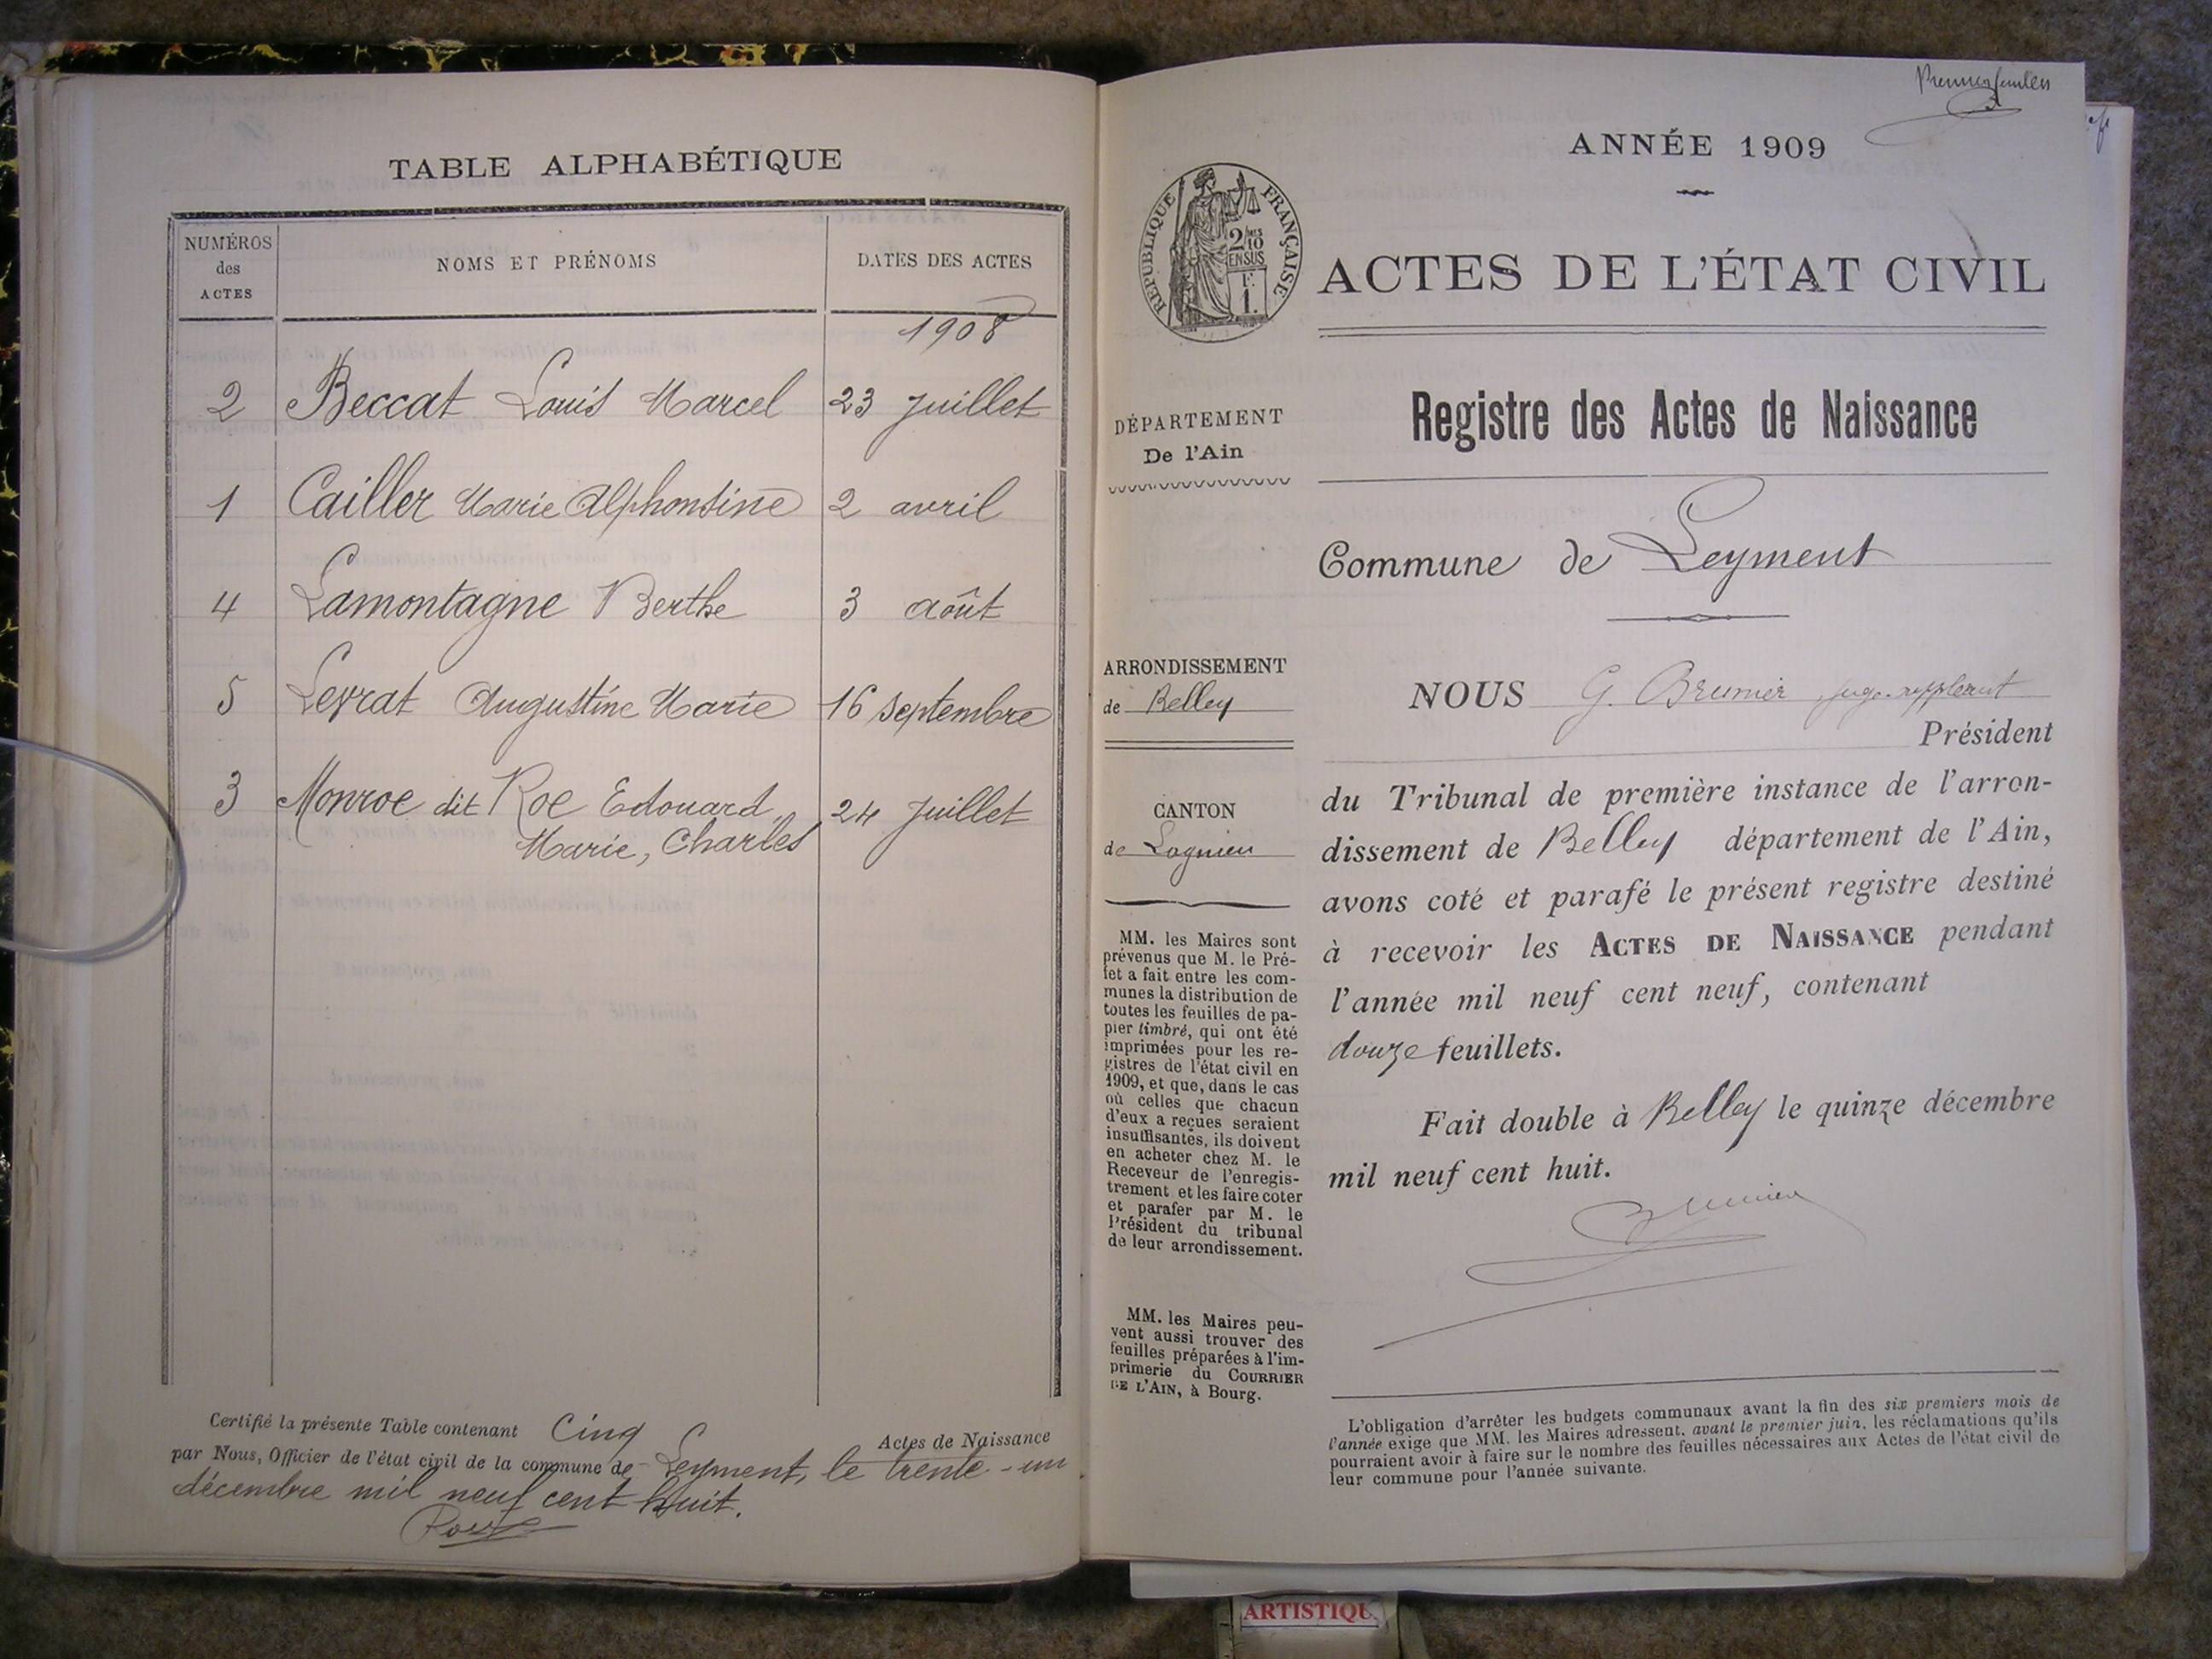 TABLE ALPHABÉTIQUE
NUMÉROS des ACTES
NOMS ET PRÉNOMS
DATES DES ACTES
1908
2 Beccat Louis Marcel 23 Juillet
1 Cailler Marie Alphonsine 2 avril
4 Lamontagne Berthe 3 août
5 Levrat Augustine Marie 16 septembre
3 Monroe dit Roe Edouard, 24 Juillet
Marie, Charles
Certifié la présente Table contenant Cinq Actes de Naissance
par Nous, Officier de l'état civil de la commune de Leyment, le trente-un
décembre mil neuf cent huit.
Roux
Premier feuillet
ANNÉE 1909
RÉPUBLIQUE FRANÇAISE
2/10 MES
EN SUS
1 F.
ACTES DE L'ÉTAT CIVIL
Registre des Actes de Naissance
DÉPARTEMENT
De l'Ain
Commune de Leyment
ARRONDISSEMENT
de Belley
CANTON
de Lagnieu
MM. les Maires sont
prévenus que M. le Pré-
fet a fait entre les com-
munes la distribution de
toutes les feuilles de pa-
pier timbré, qui ont été
imprimées pour les re-
gistres de l'état civil en
1909, et que, dans le cas
où celles que chacun
d'eux a reçues seraient
insuffisantes, ils doivent
en acheter chez M. le
Receveur de l'enregis-
trement et les faire coter
et parafer par M. le
Président du tribunal
de leur arrondissement.
MM. les Maires peu-
vent aussi trouver des
feuilles préparées à l'im-
primerie du COURRIER
DE L'AIN, à Bourg.
NOUS G. Brunier, juge suppléant
Président
du Tribunal de première instance de l'arron-
dissement de Belley département de l'Ain,
avons coté et parafé le présent registre destiné
à recevoir les ACTES DE NAISSANCE pendant
l'année mil neuf cent neuf, contenant
douze feuillets.
Fait double à Belley le quinze décembre
mil neuf cent huit.
Brunier
L'obligation d'arrêter les budgets communaux avant la fin des six premiers mois de
l'année exige que MM. les Maires adressent, avant le premier juin, les réclamations qu'ils
pourraient avoir à faire sur le nombre des feuilles nécessaires aux Actes de l'état civil de
leur commune pour l'année suivante.
ARTISTIQU